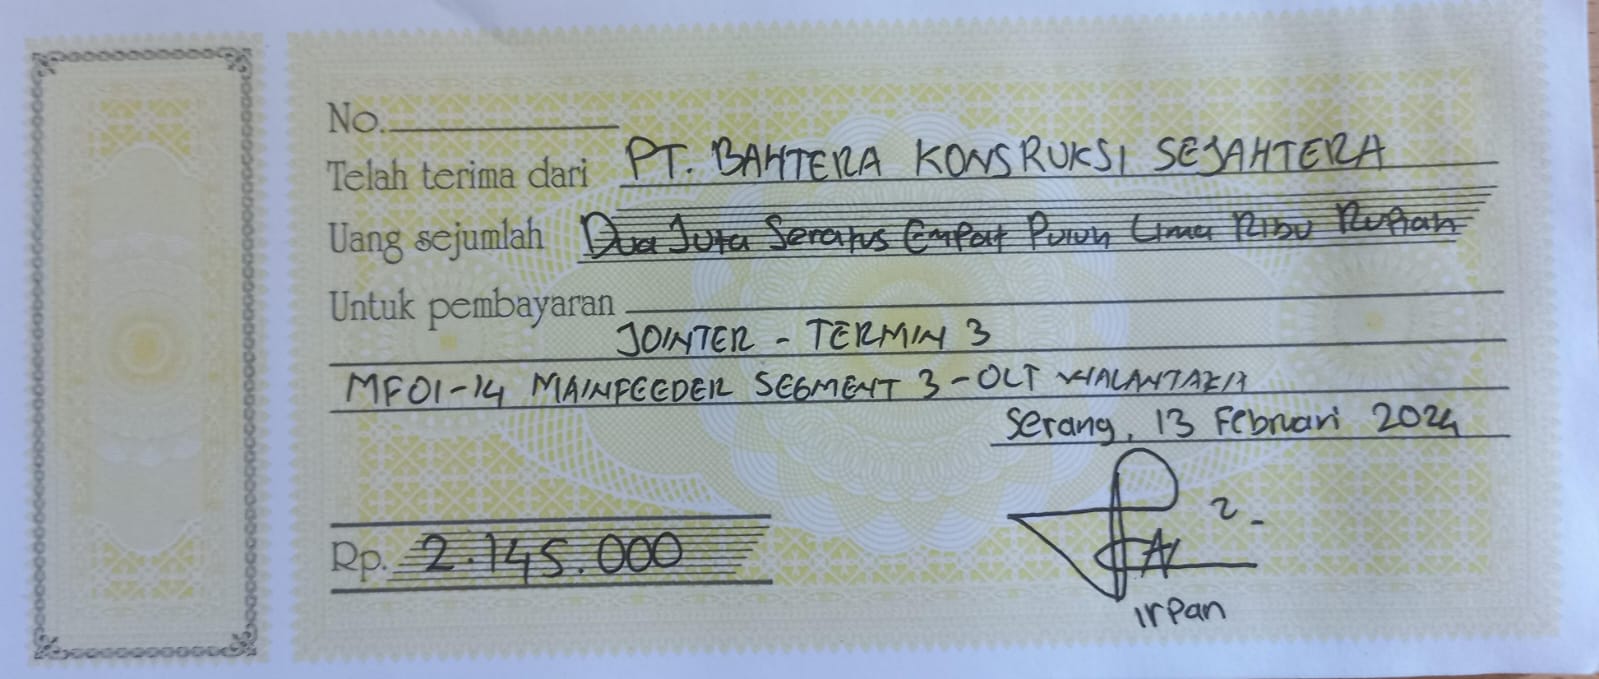 No.
Telah terima dari PT. BAHTERA KONSRUKSI SEJAHTERA
Uang sejumlah Dua Juta Seratus Empat Puluh Lima Ribu Rupiah
Untuk pembayaran
JOINTER - TERMIN 3
MF01-14 MAINFEEDER SEGMENT 3 - OLT WALANTAKA
Serang, 13 Februari 2024
Rp. 2.145.000
irpan